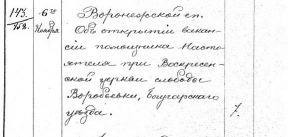 143. 6го Воронежской еп.
Ноября Объ открытіи вакан-
сіи помощника Насто-
ятеля при Воскресен-
ской церкви слободы
Воробьевки, Богучарскаго
уѣзда. 7.